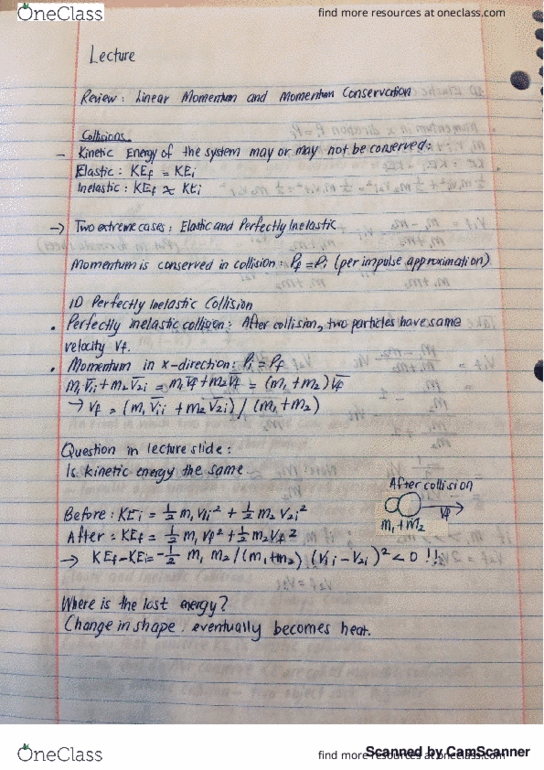 OneClass
find more resources at oneclass.com
Lecture
Review: Linear Momentum and Momentum Conservation
Collisions.
- Kinetic Energy of the system may or may not be conserved:
Elastic: KEf = KEi
Inelastic: KEf ≠ KEi
→ Two extreme cases: Elastic and Perfectly Inelastic
Momentum is conserved in collision: Pf = Pi (per impulse approximation)
1D Perfectly Inelastic Collision
• Perfectly inelastic collision: After collision, two particles have same
velocity Vf.
• Momentum in x-direction: Pi = Pf
m₁V₁i + m₂V₂i = m₁Vf + m₂Vf = (m₁ + m₂)Vf
→ Vf = (m₁V₁i + m₂V₂i) / (m₁ + m₂)
Question in lecture slide:
Is kinetic energy the same.
After collision
Vf
m₁ + m₂
Before: KEi = ½ m₁V₁i² + ½ m₂V₂i²
After: KEf = ½ m₁Vf² + ½ m₂Vf²
→ KEf - KEi = -½ m₁m₂/(m₁+m₂) (V₁i - V₂i)² < 0 !!
Where is the lost energy?
Change in shape. eventually becomes heat.
OneClass
find more resources at oneclass.com
Scanned by CamScanner